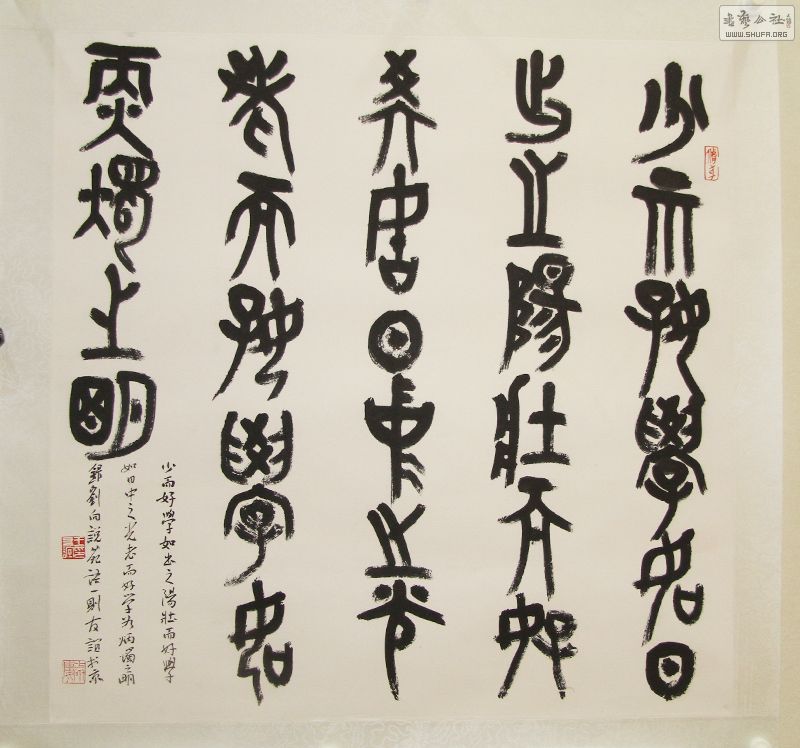 少而好學如日
出之陽壯而好
學如日中之光
老而好學如
炳燭之明
少而好學如出之陽壯而好學
如日中之光老而好学如炳燭之明
錄劉向說苑語一則友誼於京
WWW.SHUFA.ORG